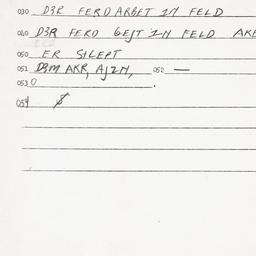 030 D3R FERD ARBET IM FELD
040 D3R FERD GEJT IN FELD AKE
050 ER SILEPT
051 D3M AKR, AJ2N, 052 —
053 0 .
054 $